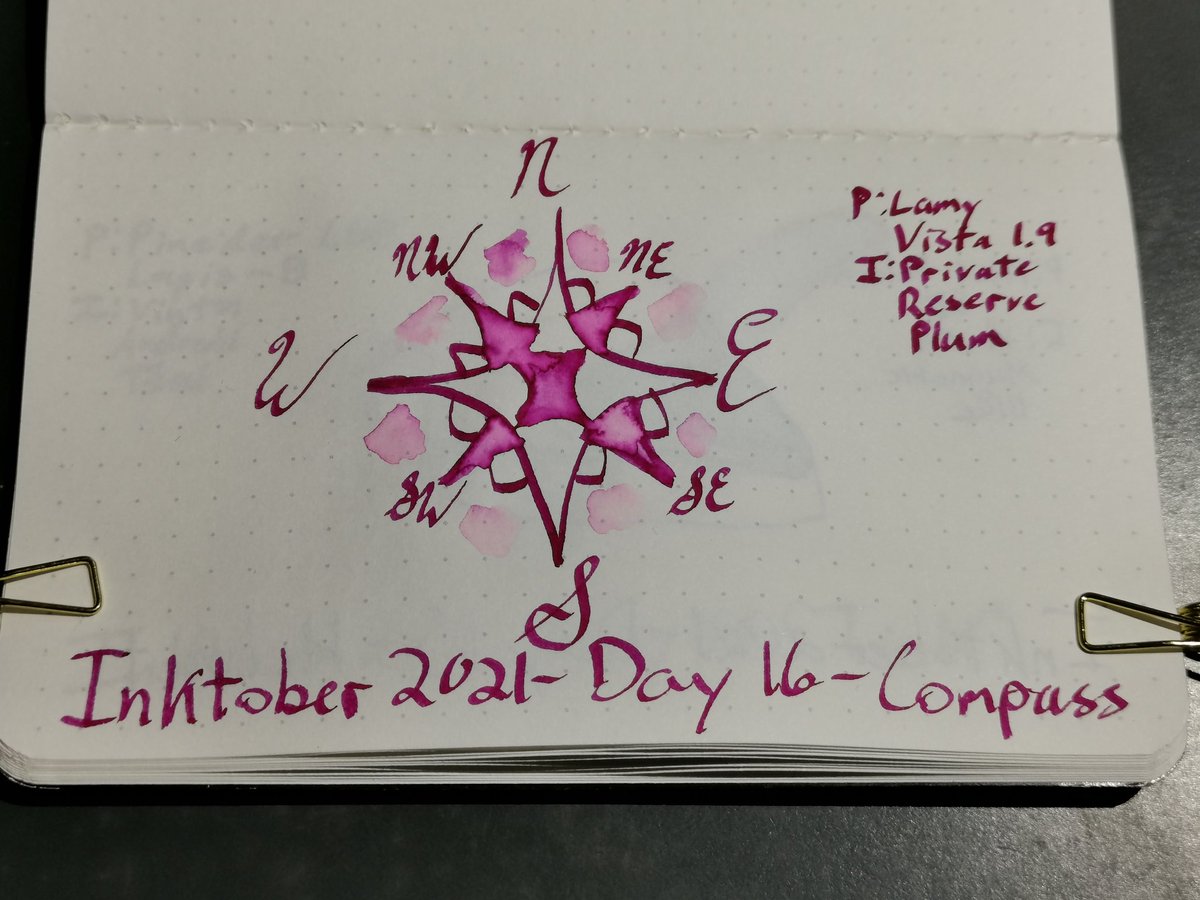 N
NW
NE
W
E
SW
SE
S
P: Lamy
Vista 1.9
I: Private
Reserve
Plum
Inktober 2021 - Day 16 - Compass